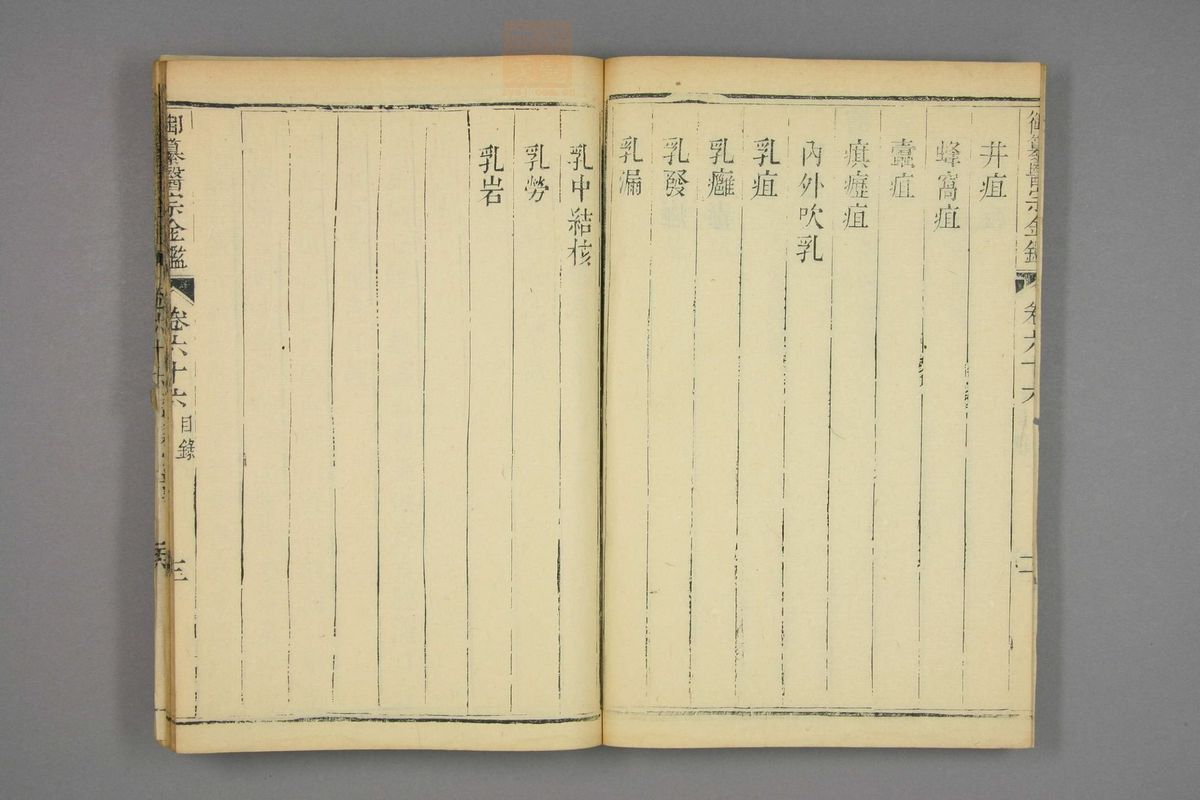 御纂醫宗金鑑 卷六十六 二
井疽
蜂窩疽
蠹疽
瘨癧疽
內外吹乳
乳疽
乳癰
乳發
乳漏
乳中結核
乳勞
乳岩
御纂醫宗金鑑 卷六十六 目錄 三